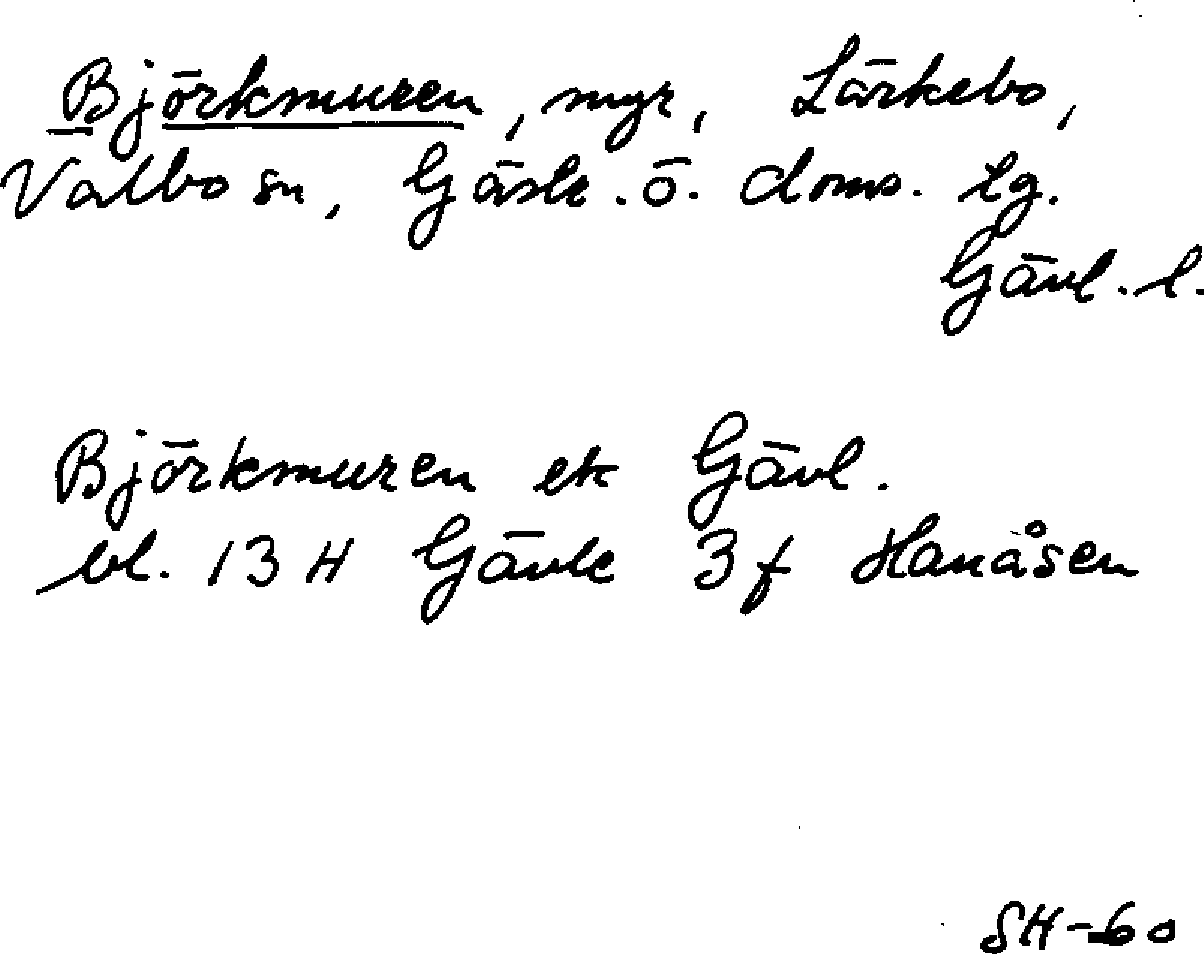 Björkmuren, myr, Lärkebo,
Valbo sn, Gästr. ö. doms. tg.
Gävl. l.
Björkmuren ek Gävl.
bl. 13 H Gävle 3f Hanåsen
SH-60